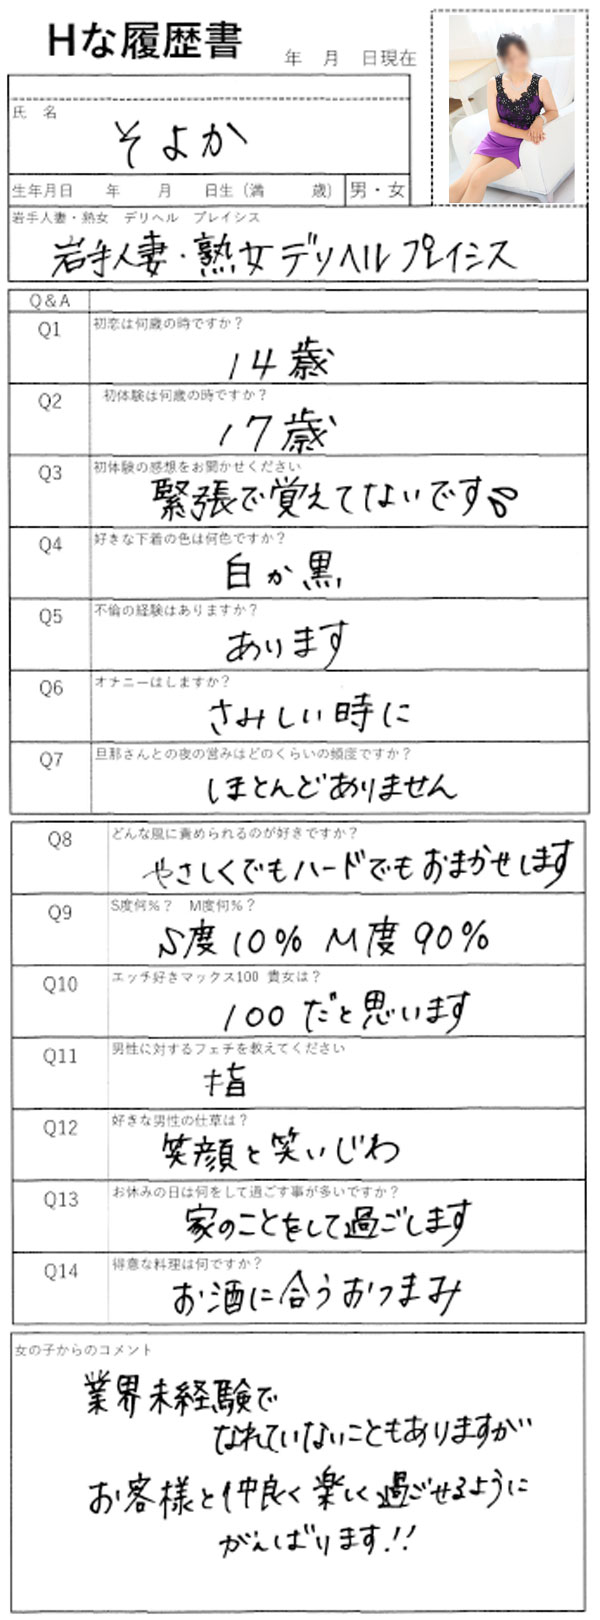 Hな履歴書
年 月 日現在
氏 名
そよか
生年月日 年 月 日生（満 歳） 男・女
岩手人妻・熟女 デリヘル プレイシス
岩手人妻・熟女デリヘルプレイシス
Q&A
Q1 初恋は何歳の時ですか？
14歳
Q2 初体験は何歳の時ですか？
17歳
Q3 初体験の感想をお聞かせください
緊張で覚えてないです
Q4 好きな下着の色は何色ですか？
白か黒
Q5 不倫の経験はありますか？
あります
Q6 オナニーはしますか？
さみしい時に
Q7 旦那さんとの夜の営みはどのくらいの頻度ですか？
ほとんどありません
Q8 どんな風に責められるのが好きですか？
やさしくでもハードでもおまかせします
Q9 S度何％？ M度何％？
S度10% M度90%
Q10 エッチ好きマックス100 貴女は？
100だと思います
Q11 男性に対するフェチを教えてください
指
Q12 好きな男性の仕草は？
笑顔と笑いじわ
Q13 お休みの日は何をして過ごす事が多いですか？
家のことをして過ごします
Q14 得意な料理は何ですか？
お酒に合うおつまみ
女の子からのコメント
業界未経験で
なれていないこともありますが
お客様と仲良く楽しく過ごせるように
がんばります!!